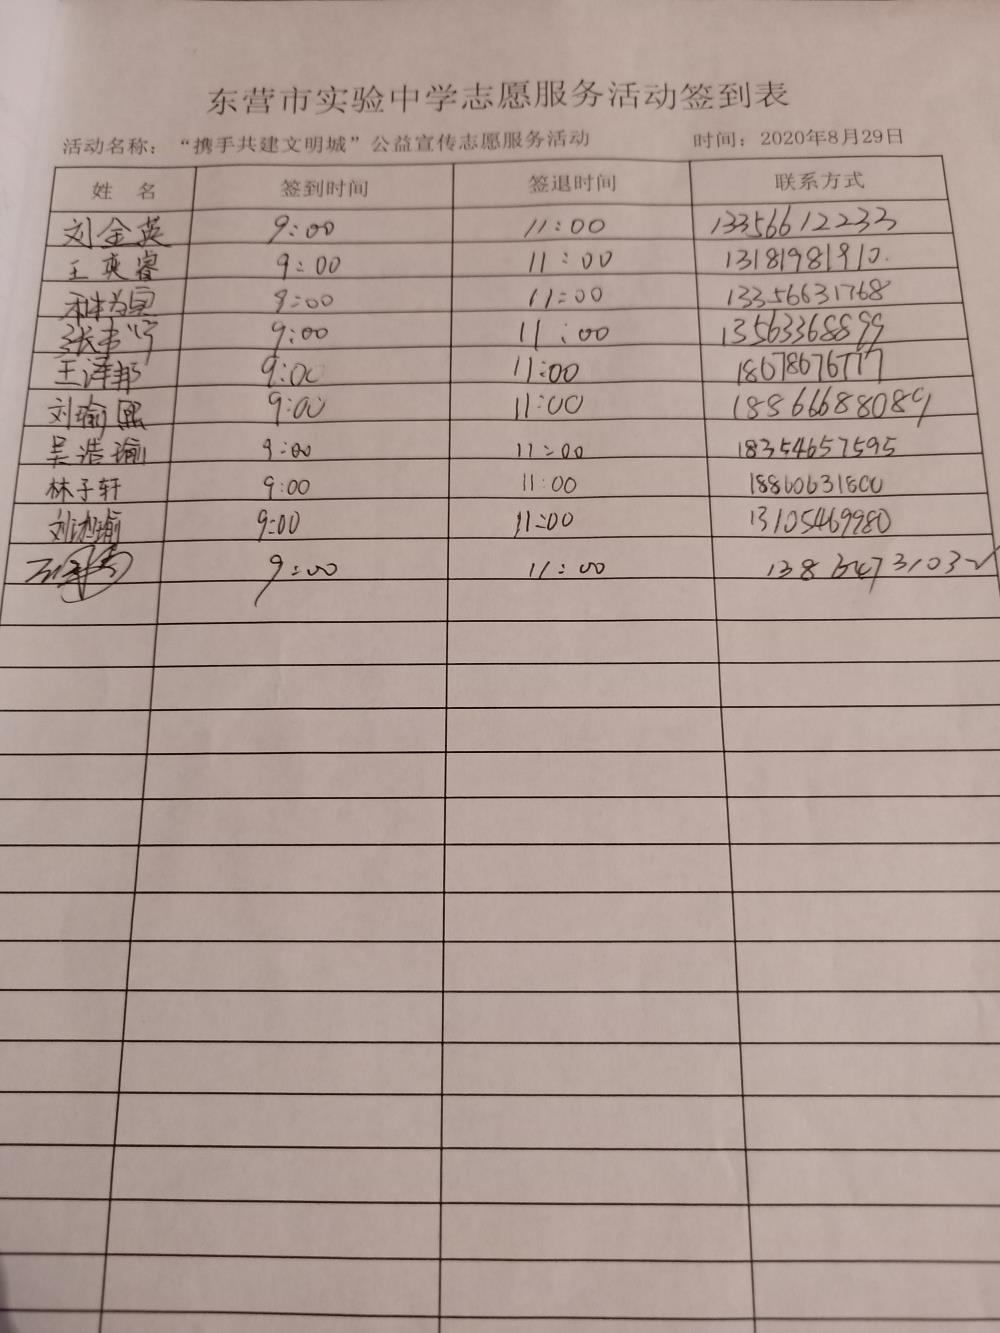 东营市实验中学志愿服务活动签到表
活动名称：“携手共建文明城”公益宣传志愿服务活动 时间：2020年8月29日
姓 名 签到时间 签退时间 联系方式
刘金英 9:00 11:00 13356612233
王奕睿 9:00 11:00 13181981910.
9:00 11:00 13356631768
9:00 11:00 13563368899
王泽邦 9:00 11:00 18678676777
刘瑜熙 9:00 11:00 18866688089
吴浩瑜 9:00 11:00 18354657595
林子轩 9:00 11:00 18860631800
9:00 11:00 13105469980
9:00 11:00